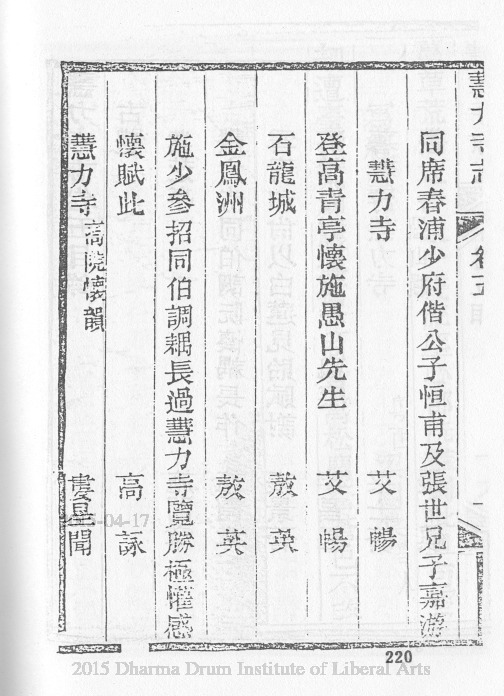 慧力寺志
卷五
同席春浦少府偕公子恒甫及張世兄子嘉游
慧力寺 艾暢
登高青亭懷施愚山先生 艾暢
石龍城 敖英
金鳳洲 敖英
施少參招同伯調耦長過慧力寺覽勝極懽感
懷賦此 高詠
慧力寺 高阮懷韻 婁星聞
220
-04-17
2015 Dharma Drum Institute of Liberal Arts